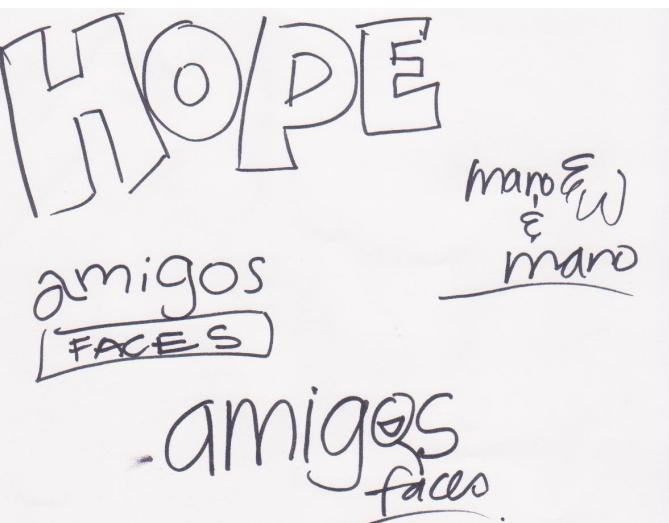 HOPE
mano &
&
mano
amigos
FACES
amigos
faces